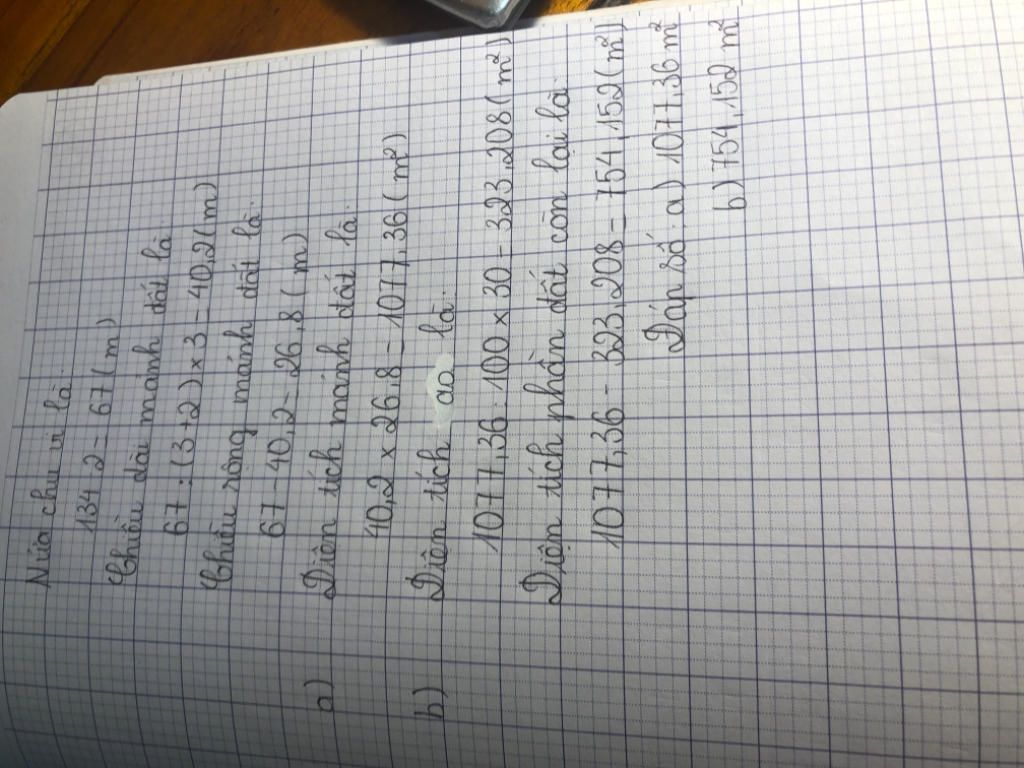 Nửa chu vi là:
134 : 2 = 67 (m)
Chiều dài mảnh đất là:
67 : (3 + 2) x 3 = 40,2 (m)
Chiều rộng mảnh đất là:
67 - 40,2 = 26,8 (m)
a) Diện tích mảnh đất là:
40,2 x 26,8 = 1077,36 (m²)
b) Diện tích ao là:
1077,36 : 100 x 30 = 323,208 (m²)
Diện tích phần đất còn lại là:
1077,36 - 323,208 = 754,152 (m²)
Đáp số: a) 1077,36 m²
b) 754,152 m²